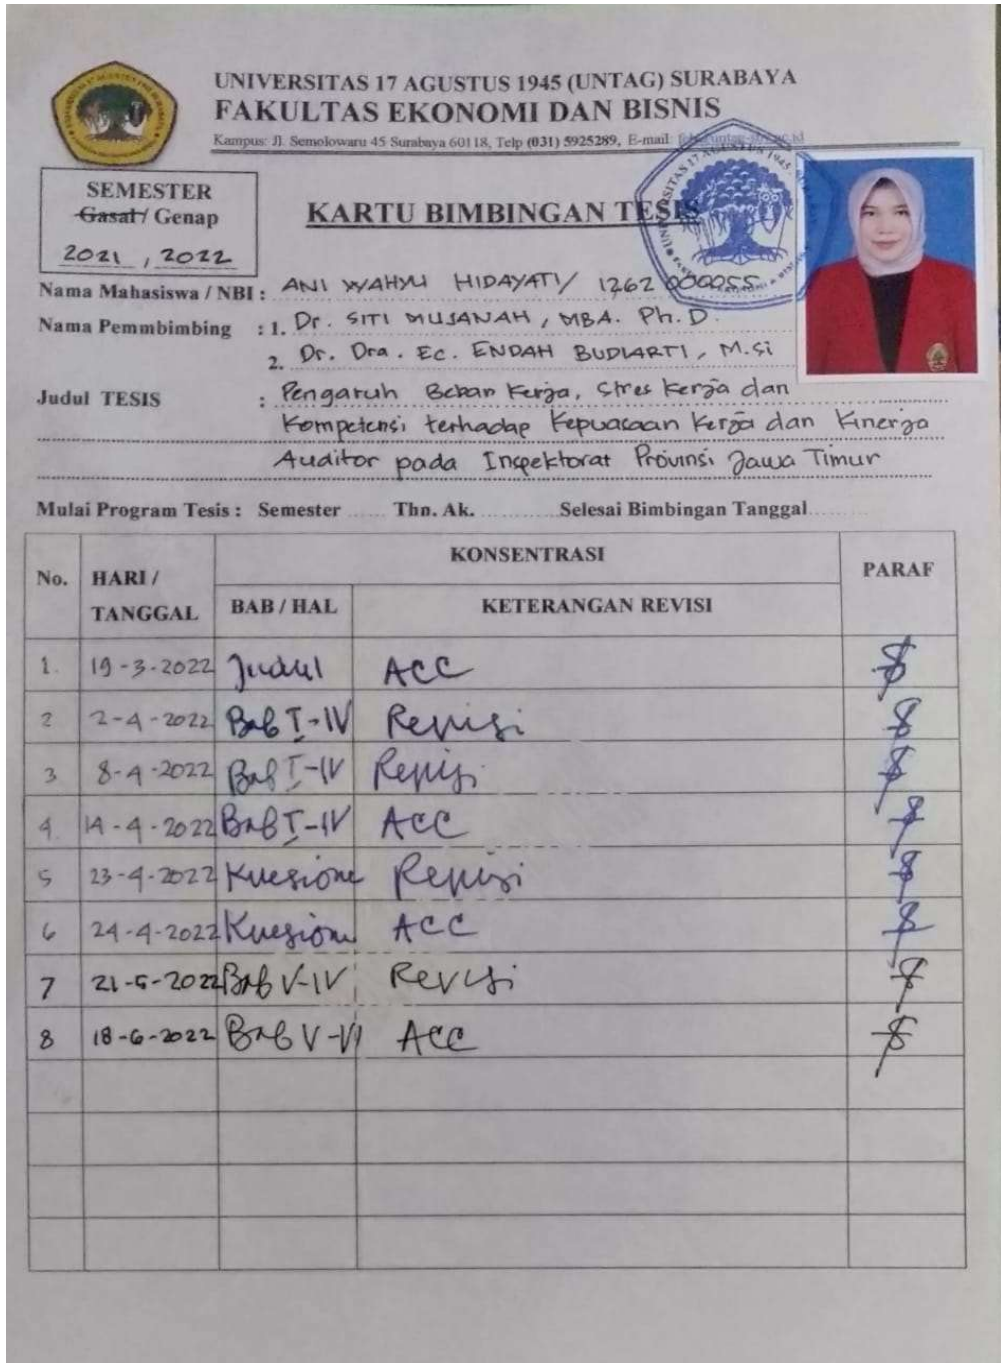 UNIVERSITAS 17 AGUSTUS 1945 (UNTAG) SURABAYA
FAKULTAS EKONOMI DAN BISNIS
Kampus: Jl. Semolowaru 45 Surabaya 60118, Telp (031) 5925289, E-mail:
SEMESTER
Gasal / Genap
2021 , 2022
KARTU BIMBINGAN TESIS
Nama Mahasiswa / NBI : ANI WAHYU HIDAYATI / 1262 000055
Nama Pemmbimbing : 1. Dr. SITI MUJANAH, MBA. Ph.D.
2. Dr. Dra. Ec. ENDAH BUDIARTI, M.Si
Judul TESIS : Pengaruh Beban Kerja, Stres Kerja dan
Kompetensi terhadap Kepuasaan Kerja dan Kinerja
Auditor pada Inspektorat Provinsi Jawa Timur
Mulai Program Tesis : Semester ...... Thn. Ak. ............ Selesai Bimbingan Tanggal.........
No. HARI / TANGGAL KONSENTRASI PARAF
BAB / HAL KETERANGAN REVISI
1. 19-3-2022 Judul ACC
2 2-4-2022 Bab I-IV Revisi
3 8-4-2022 Bab I-IV Revisi
4. 14-4-2022 Bab I-IV ACC
5 23-4-2022 Kuesione Revisi
6 24-4-2022 Kuesione ACC
7 21-5-2022 Bab V-IV Revisi
8 18-6-2022 Bab V-VI ACC